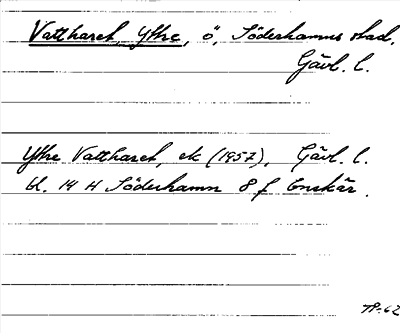 Vattharet, Yttre, ö, Söderhamns stad.
Gävl. l.
Yttre Vattharet, ek (1957), Gävl. l.
bl. 14 H Söderhamn 8 f Enskär.
TP-62